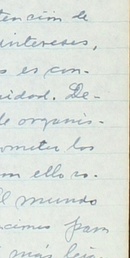 tención de
intereses,
s es con-
sidad. De-
de organis-
ometer los
on ellos.
el mundo
cimos para
más leja-